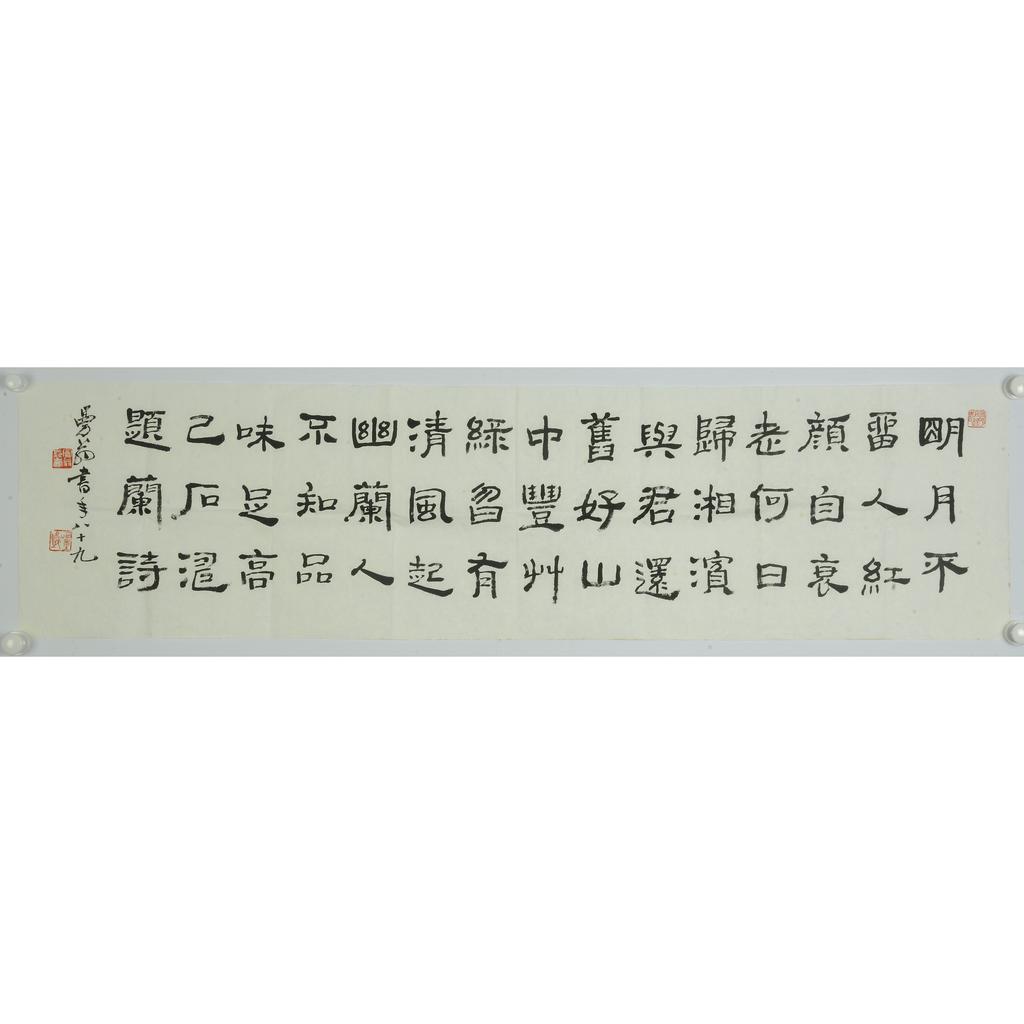 明月平
畱人紅
顏自衰
老何日
歸湘濱
與君還
舊好山
中豐艸
綠曶有
清風起
幽蘭人
不知品
味足高
己石濤
題蘭詩
曼翁書年八十九